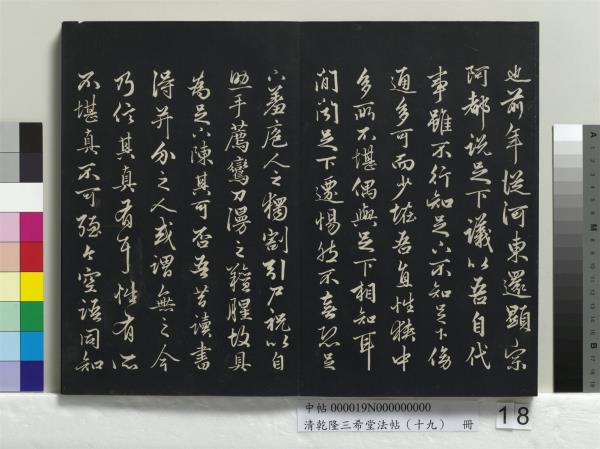 也前年從河東還顯宗
阿都說足下議以吾自代
事雖不行知足下不知足下傍
通多可而少怪吾直性狹中
多所不堪偶與足下相知耳
間聞足下遷惕然不喜恐足
下羞庖人之獨割引尸祝以自
助手薦鸞刀漫之羶腥故具
為足下陳其可否吾昔讀書
得并介之人或謂無之今
乃信其真有耳性有所
不堪真不可強今空語同知
中帖 000019N000000000
清乾隆三希堂法帖（十九） 冊
18